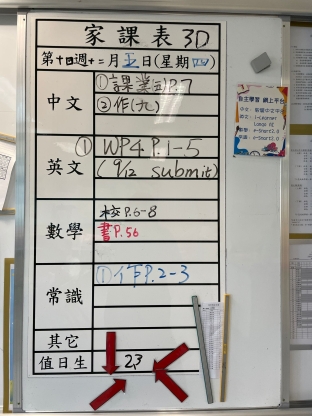 家課表 3D
第十四週十二月五日(星期四)
中文
①課業(五)P.7
②作(九)
英文
① WP4 P.1-5
(9/12 submit)
數學
校P.6-8
書P.56
常識
①作P.2-3
其它
值日生
23
自主學習 網上平台